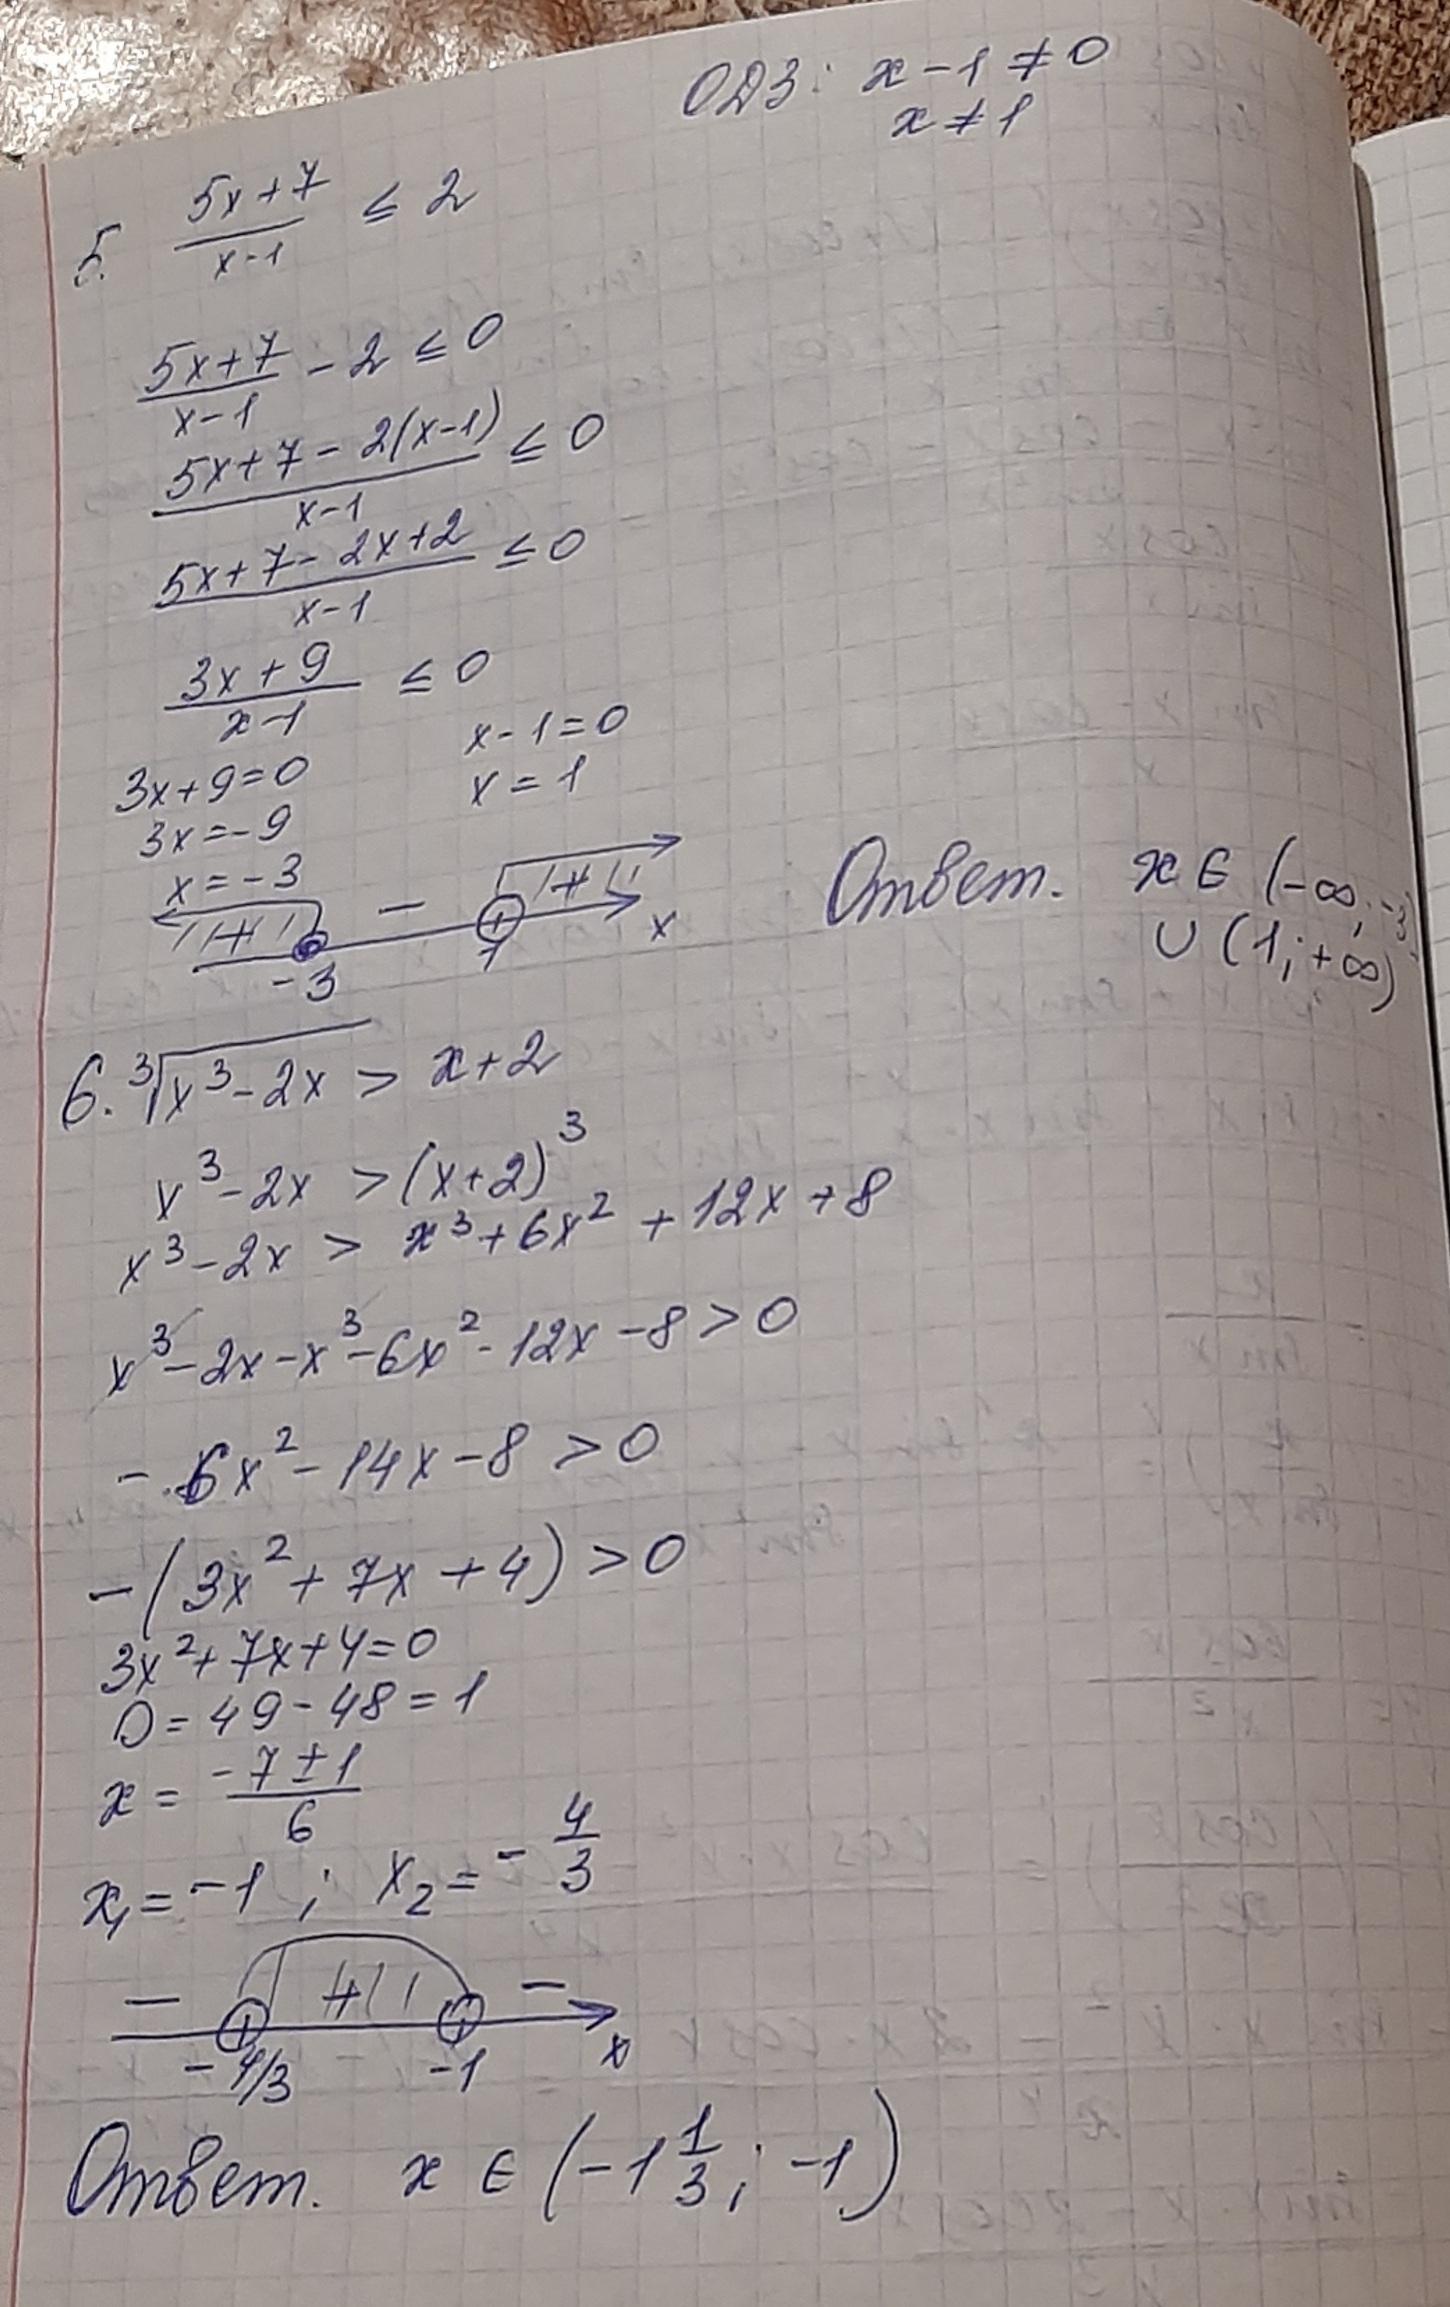 ОДЗ: x - 1 ≠ 0
x ≠ 1
5. (5x+7)/(x-1) ≤ 2
(5x+7)/(x-1) - 2 ≤ 0
(5x+7-2(x-1))/(x-1) ≤ 0
(5x+7-2x+2)/(x-1) ≤ 0
(3x+9)/(x-1) ≤ 0
3x+9=0
3x=-9
x=-3
x-1=0
x=1
+ - + x
-3 1
Ответ. x ∈ (-∞; -3]
∪ (1; +∞)
6. ∛(x³-2x) > x+2
x³-2x > (x+2)³
x³-2x > x³+6x²+12x+8
x³-2x-x³-6x²-12x-8>0
-6x²-14x-8>0
-(3x²+7x+4)>0
3x²+7x+4=0
D=49-48=1
x = (-7±1)/6
x₁=-1; x₂=-4/3
- + -
-4/3 -1 x
Ответ. x ∈ (-1 1/3; -1)